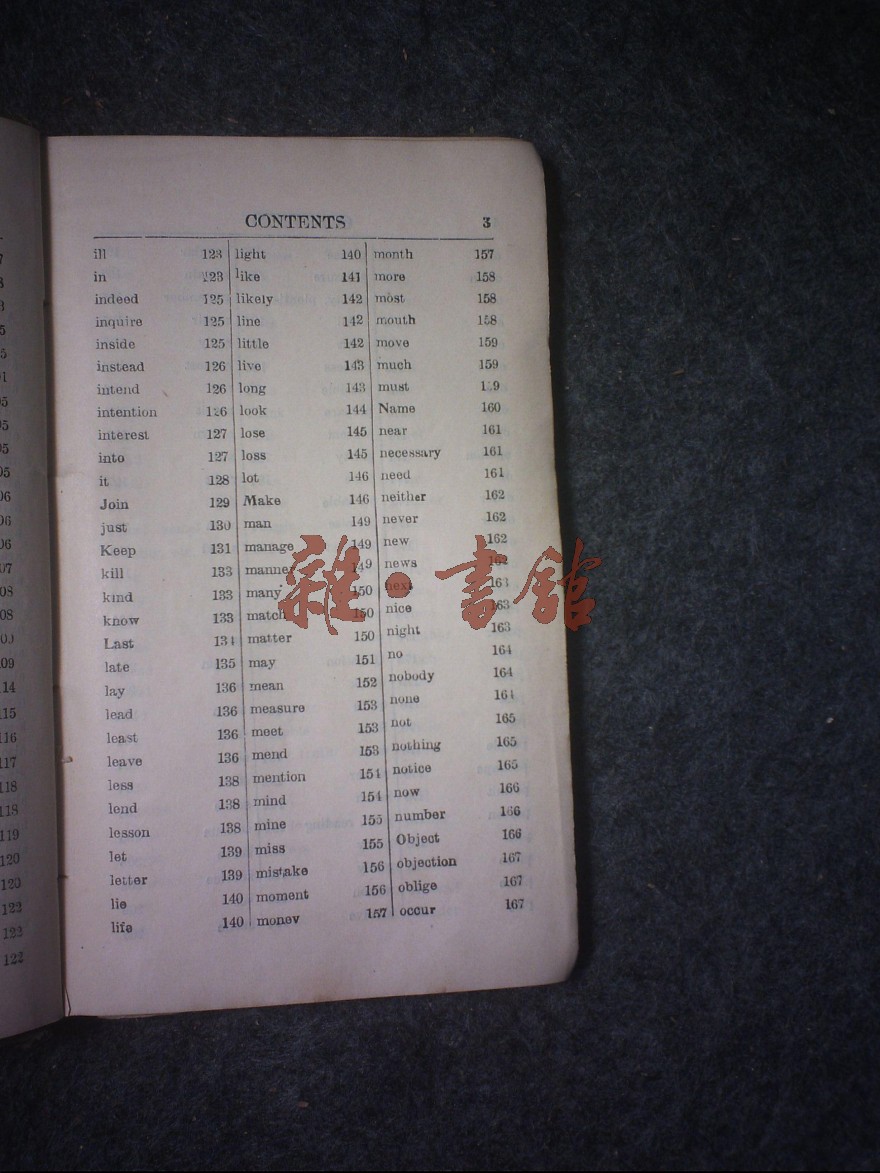 CONTENTS 3
ill 123
in 123
indeed 125
inquire 125
inside 125
instead 126
intend 126
intention 126
interest 127
into 127
it 128
Join 129
just 130
Keep 131
kill 133
kind 133
know 133
Last 134
late 135
lay 136
lead 136
least 136
leave 136
less 138
lend 138
lesson 138
let 139
letter 139
lie 140
life 140
light 140
like 141
likely 142
line 142
little 142
live 143
long 143
look 144
lose 145
loss 145
lot 146
Make 146
man 149
manage 149
manner 149
many 150
match 150
matter 150
may 151
mean 152
measure 153
meet 153
mend 153
mention 154
mind 154
mine 155
miss 155
mistake 156
moment 156
money 157
month 157
more 158
most 158
mouth 158
move 159
much 159
must 159
Name 160
near 161
necessary 161
need 161
neither 162
never 162
new 162
news 162
next 163
nice 163
night 163
no 164
nobody 164
none 164
not 165
nothing 165
notice 165
now 166
number 166
Object 166
objection 167
oblige 167
occur 167
雜·書館